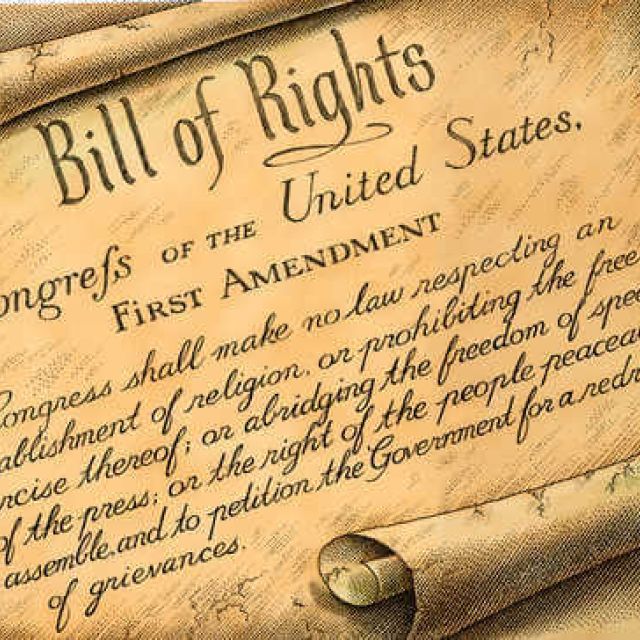 Bill of Rights
ongreſs OF THE United States,
FIRST AMENDMENT
Congress shall make no law respecting an
ablishment of religion, or prohibiting the free
rcise thereof; or abridging the freedom of spee
of the press; or the right of the people peacea
assemble, and to petition the Government for a redr
of grievances.